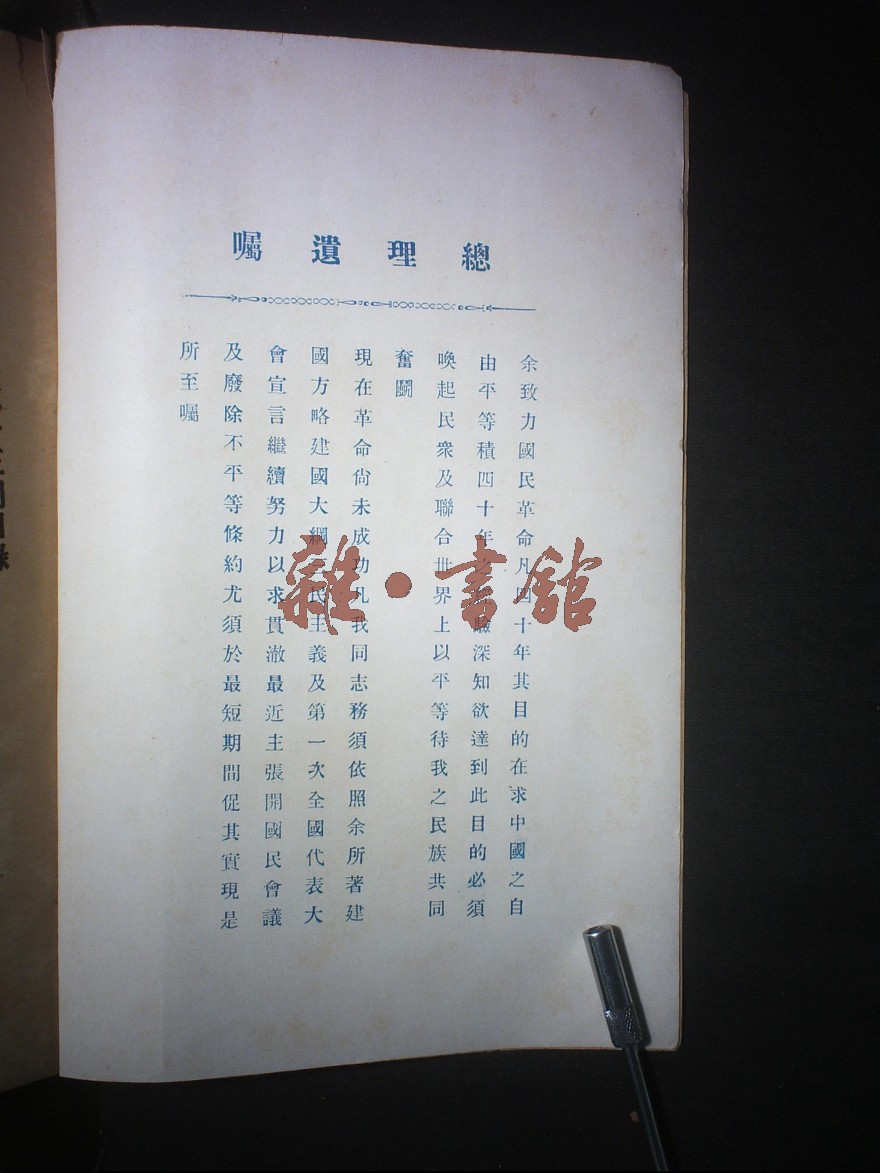 總理遺囑
余致力國民革命凡四十年其目的在求中國之自
由平等積四十年之經驗深知欲達到此目的必須
喚起民衆及聯合世界上以平等待我之民族共同
奮鬭
現在革命尙未成功凡我同志務須依照余所著建
國方略建國大綱三民主義及第一次全國代表大
會宣言繼續努力以求貫澈最近主張開國民會議
及廢除不平等條約尤須於最短期間促其實現是
所至囑
雜·書館